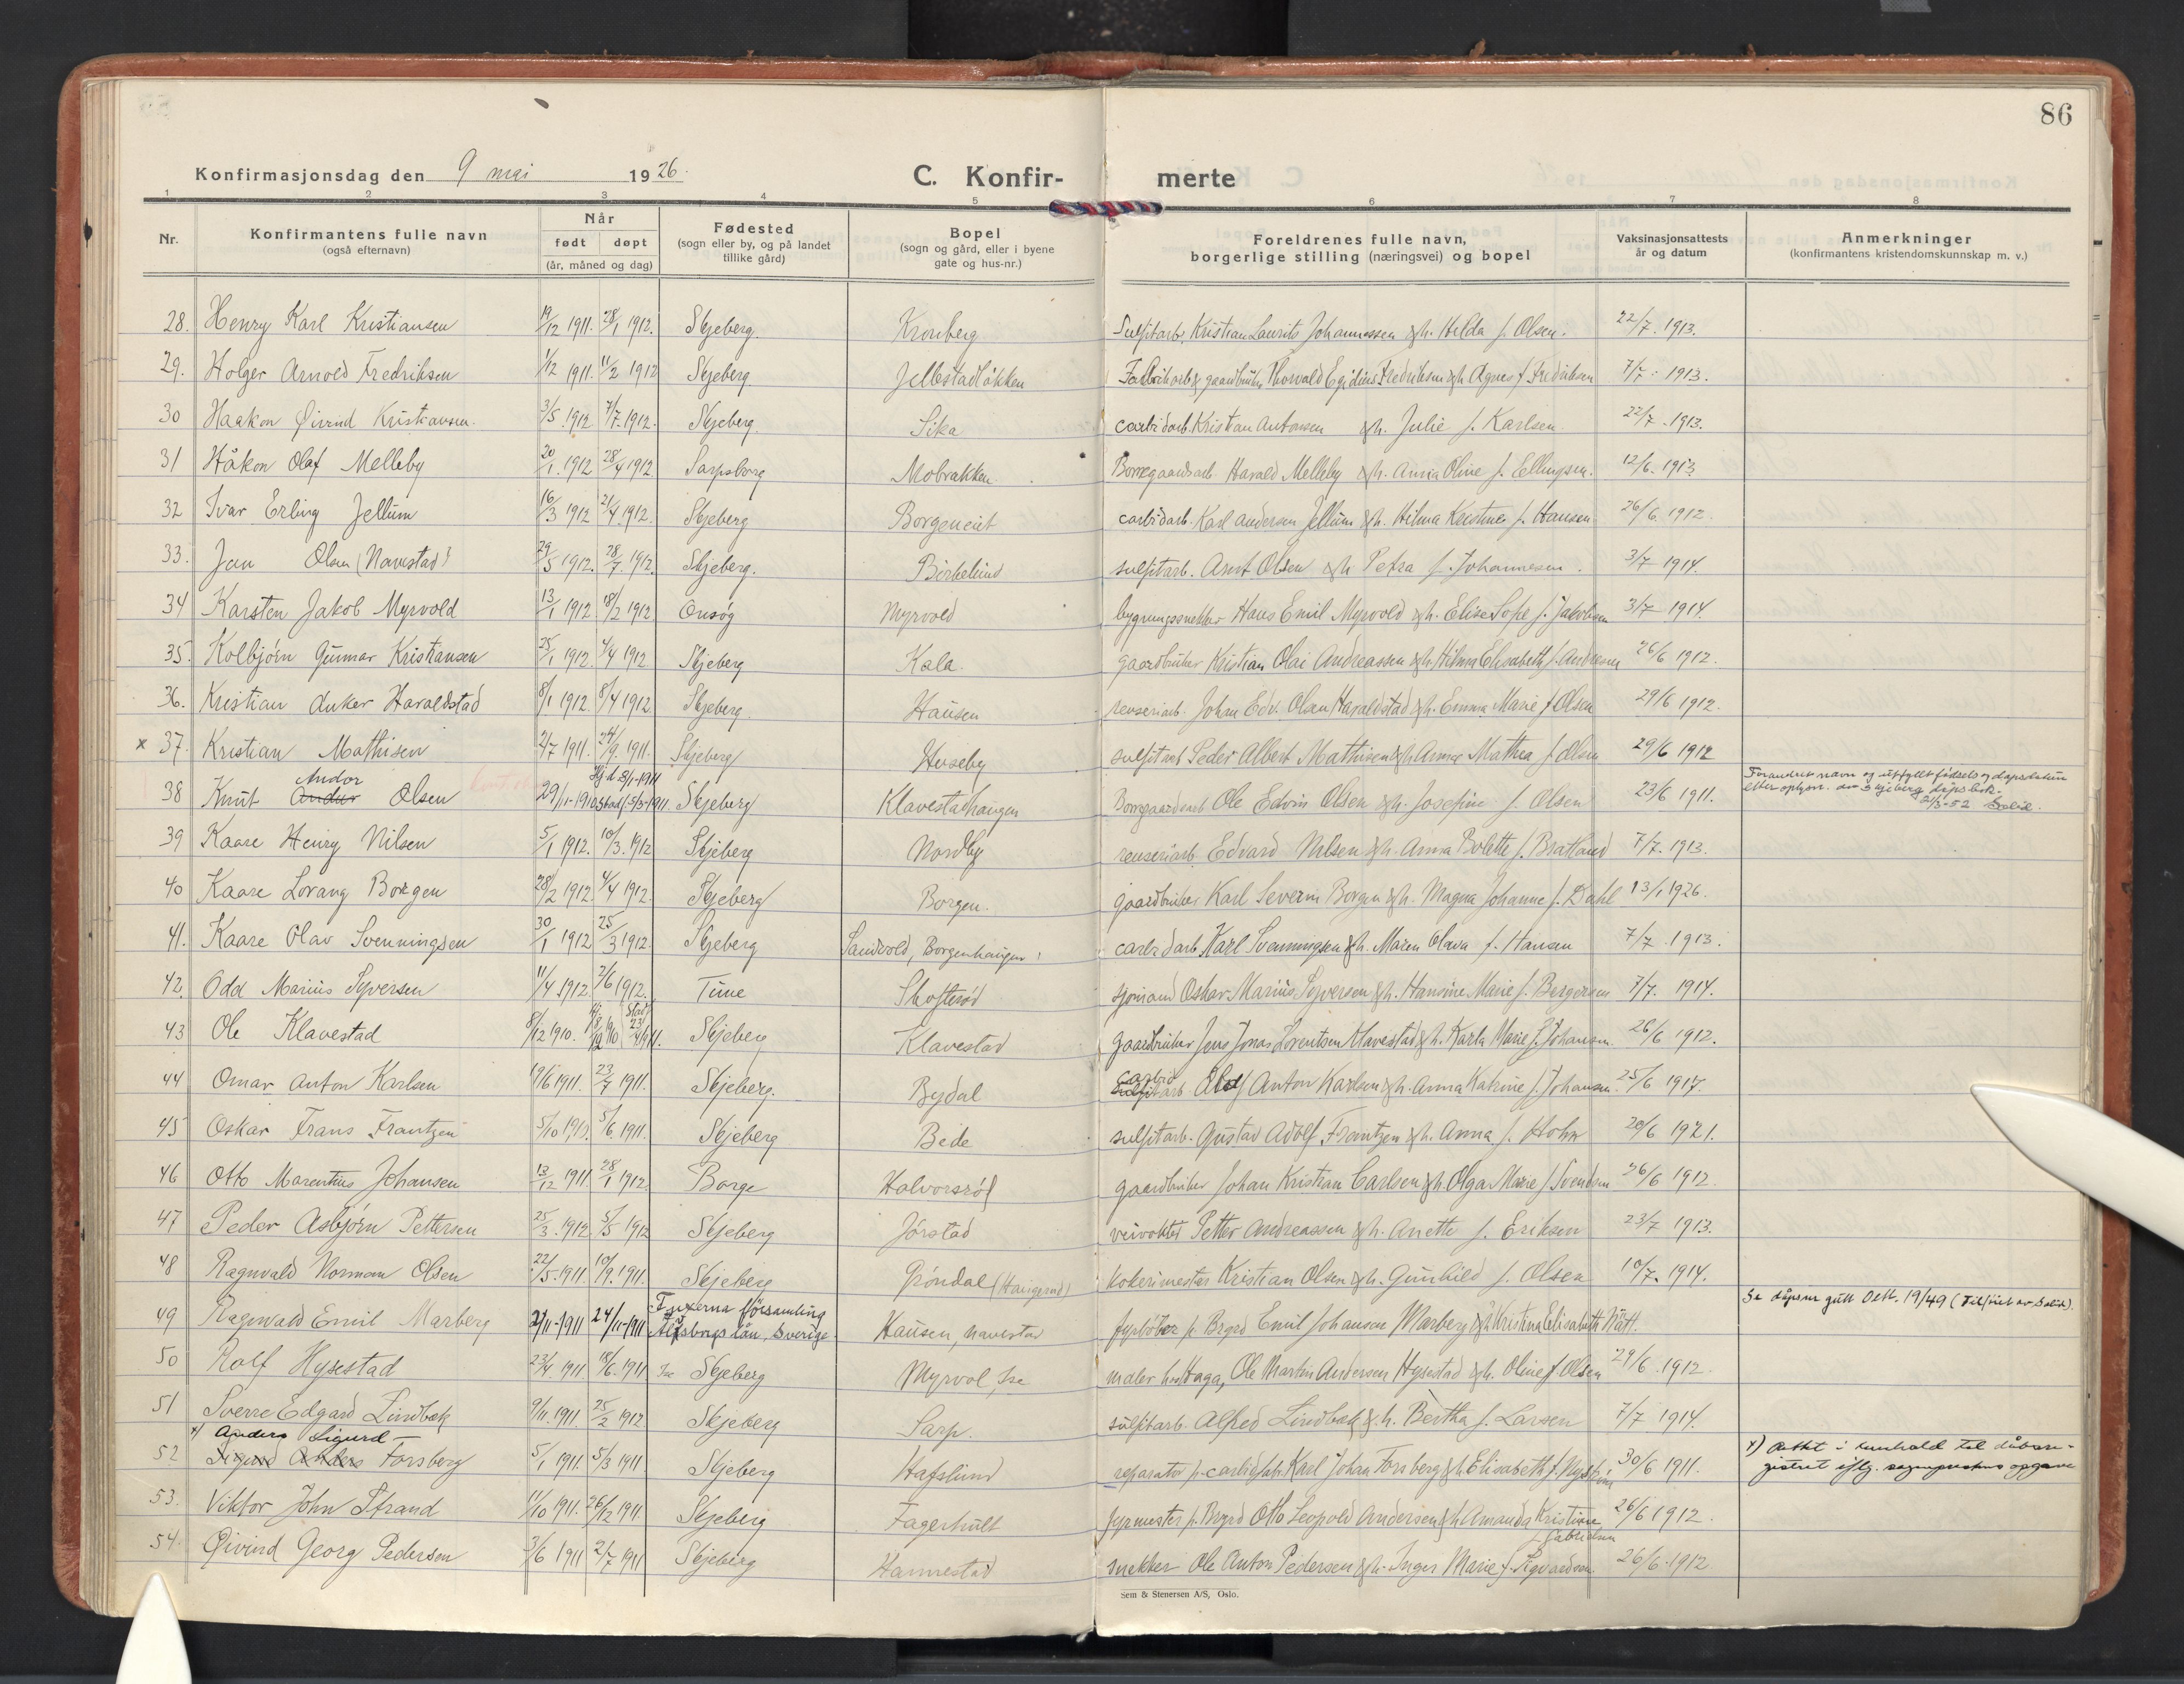 86
Konfirmasjonsdag den 9 mai 1926.
C. Konfir- merte
1 2 3 4 5 6 7 8
Nr.
Konfirmantens fulle navn (også efternavn)
Når født døpt (år, måned og dag)
Fødested (sogn eller by, og på landet tillike gård)
Bopel (sogn og gård, eller i byene gate og hus-nr.)
Foreldrenes fulle navn, borgerlige stilling (næringsvei) og bopel
Vaksinasjonsattests år og datum
Anmerkninger (konfirmantens kristendomskunnskap m. v.)
28. Henry Karl Kristiansen 19/12 1911. 28/1 1912. Skjeberg. Kronberg Sulfitarb. Kristian Laurits Johannessen & h. Hilda f. Olsen. 22/7. 1913.
29. Holger Arnold Fredriksen 1/12 1911. 11/2 1912 Skjeberg Jellestadløkken Fabrikarb & gaardbruker Thorvald Egidius Fredriksen & h. Agnes f. Fredriksen 7/7. 1913.
30 Haakon Øivind Kristiansen. 3/5. 1912 7/7. 1912. Skjeberg. Sika carbidarb. Kristian Antonsen & h. Julie f. Karlsen 22/7. 1913.
31 Håkon Olaf Melleby 20/1. 1912 28/4 1912 Sarpsborg Mobrakken. Borregaardsarb Harald Melleby & h. Anna Oline f. Ellingsen. 12/6. 1913
32 Ivar Erling Jellum 16/3 1912 21/4. 1912. Skjeberg Borgeneiet carbidarb. Karl Andersen Jellum & h. Hilma Kristine f. Hansen 26/6. 1912.
33. Jan Olsen (Navestad) 29/5 1912. 28/7. 1912. Skjeberg. Birkelund sulfitarb. Arnt Olsen & h Petra f. Johannesen. 3/7 1914.
34 Karsten Jakob Myrvold 13/1 1912. 18/2 1912 Onsøy Myrvold bygningssnekker Hans Emil Myrvold & h. Elise Sofie f. Jakobsen 3/7 1914.
35. Kolbjørn Gunnar Kristiansen 25/1 1912. 4/4 1912 Skjeberg Kala. gaardbruker Kristian Olai Andreassen & h. Hilma Elisabeth f. Andresen 26/6 1912.
36. Kristian Anker Haraldstad 8/1 1912. 8/4 1912 Skjeberg. Hausen renseriarb. Johan Edv. Olsen Haraldstad & h. Emma Marie f Olsen 29/6 1912.
x 37. Kristian Mathisen 2/7 1911. 24/9. 1911. Skjeberg Huseby sulfitarb Peder Albert Mathisen & h Anna Mathea f. Olsen 29/6 1912
38 Knut Andor Olsen 29/11-1910 Hjd. 8/1-1911 stad. 5/3-1911. Skjeberg Klavestadhaugen Borregaardsarb Ole Edvin Olsen & h. Josefine f. Olsen 23/6 1911. Forandret navn og utfyllt fødsels og dapsdatum
efter oplysn. av Skjeberg dåpsbok.
21/3-52
39 Kaare Henry Nilsen 5/1 1912. 10/3. 1912 Skjeberg Nordby renseriarb. Edvard Nilsen & h. Anna Bolette f. Bratland 7/7. 1913.
40 Kaare Lorang Borgen 28/2 1912. 4/4 1912. Skjeberg Borgen. gaardbruker Karl Severin Borgen & h. Magna Johanne f. Dahl 13/1 1926.
41. Kaare Olav Svenningsen 30/1 1912 25/3 1912. Skjeberg Sandvold, Borgenhaugen carbidarb Karl Svenningsen & h. Maren Olava f. Hansen 7/7. 1913.
42. Odd Marius Syversen 11/4. 1912 2/6 1912. Tune Skofterød sjømand Oskar Marius Syversen & h. Hansine Marie f. Bergersen 7/7. 1914.
43 Ole Klavestad 8/12 1910. Hj. 18/12 1910 Stad. 23/4 1911. Skjeberg Klavestad gaardbruker Jens Jonas Lorentsen Klavestad & h. Karla Marie f. Johansen 26/6 1912.
44 Omar Anton Karlsen 19/6 1911. 23/7 1911. Skjeberg. Bydal carbid sulfitarb Olaf Anton Karlsen & h. Anna Katrine f. Johansen. 25/6 1917.
45 Oskar Frans Frantzen 5/10 1910. 5/6. 1911. Skjeberg Bede sulfitarb. Gustav Adolf Frantzen & h. Anna f. Hohn 20/6 1921.
46 Otto Marentius Johansen 13/12 1911. 28/1 1912. Borge Halvorsrød gaardbruker Johan Kristian Carlsen & h Olga Marie f Svendsen 26/6 1912.
47 Peder Asbjørn Pettersen 25/3. 1912. 5/5 1912 Skjeberg Jørstad veivokter Petter Andreassen & h. Anette f. Eriksen 23/7 1913.
48 Ragnvald Norman Olsen 22/5. 1911. 10/9. 1911. Skjeberg Grøndal (Haugerød) kokerimester Kristian Olsen & h. Gunhild f. Olsen 10/7. 1914.
49 Ragnvald Emil Marberg 2/11-1911 24/11-1911 Tuxerna församling Älfsborgs län, Sverige Hausen, Navestad fyrbøter p. Brgrd Emil Johansen Marberg & h Kristina Elisabeth Nätt. Se dåpsrn gutt Oslt. 19/49
50 Rolf Hysestad 23/4. 1911 18/6. 1911 Ise Skjeberg Myrvol, Ise maler h. Haga, Ole Martin Andersen Hysestad & h. Oline f. Olsen 29/6. 1912
51 Sverre Edgard Lindbæk 9/11. 1911. 25/2 1912. Skjeberg Sarp. sulfitarb. Alfred Lindbæk & h. Bertha f. Larsen 7/7 1914.
x) Anders Sigurd
52 Sigurd Anders Forsberg 5/1 1911. 5/3 1911 Skjeberg Hafslund reparatør p. carbidfab. Karl Johan Forsberg & h Elisabeth f. Nyström 30/6 1911. x) Rettet i henhold til dåbsre-
gistret iflg. sogneprestens opgave
53. Viktor John Strand 11/10 1911. 26/12 1911 Skjeberg Fagerhult fyrmester p. Brgrd Otto Leopold Andersen & h Amanda Kristine Gabrielsen 26/6 1912.
54. Øivind Georg Pedersen 3/6 1911 2/7 1911 Skjeberg Hannestad snekker Ole Anton Pedersen & h. Inger Marie f. Sigvardsen 26/6. 1912
Sem & Stenersen A/S, Oslo.